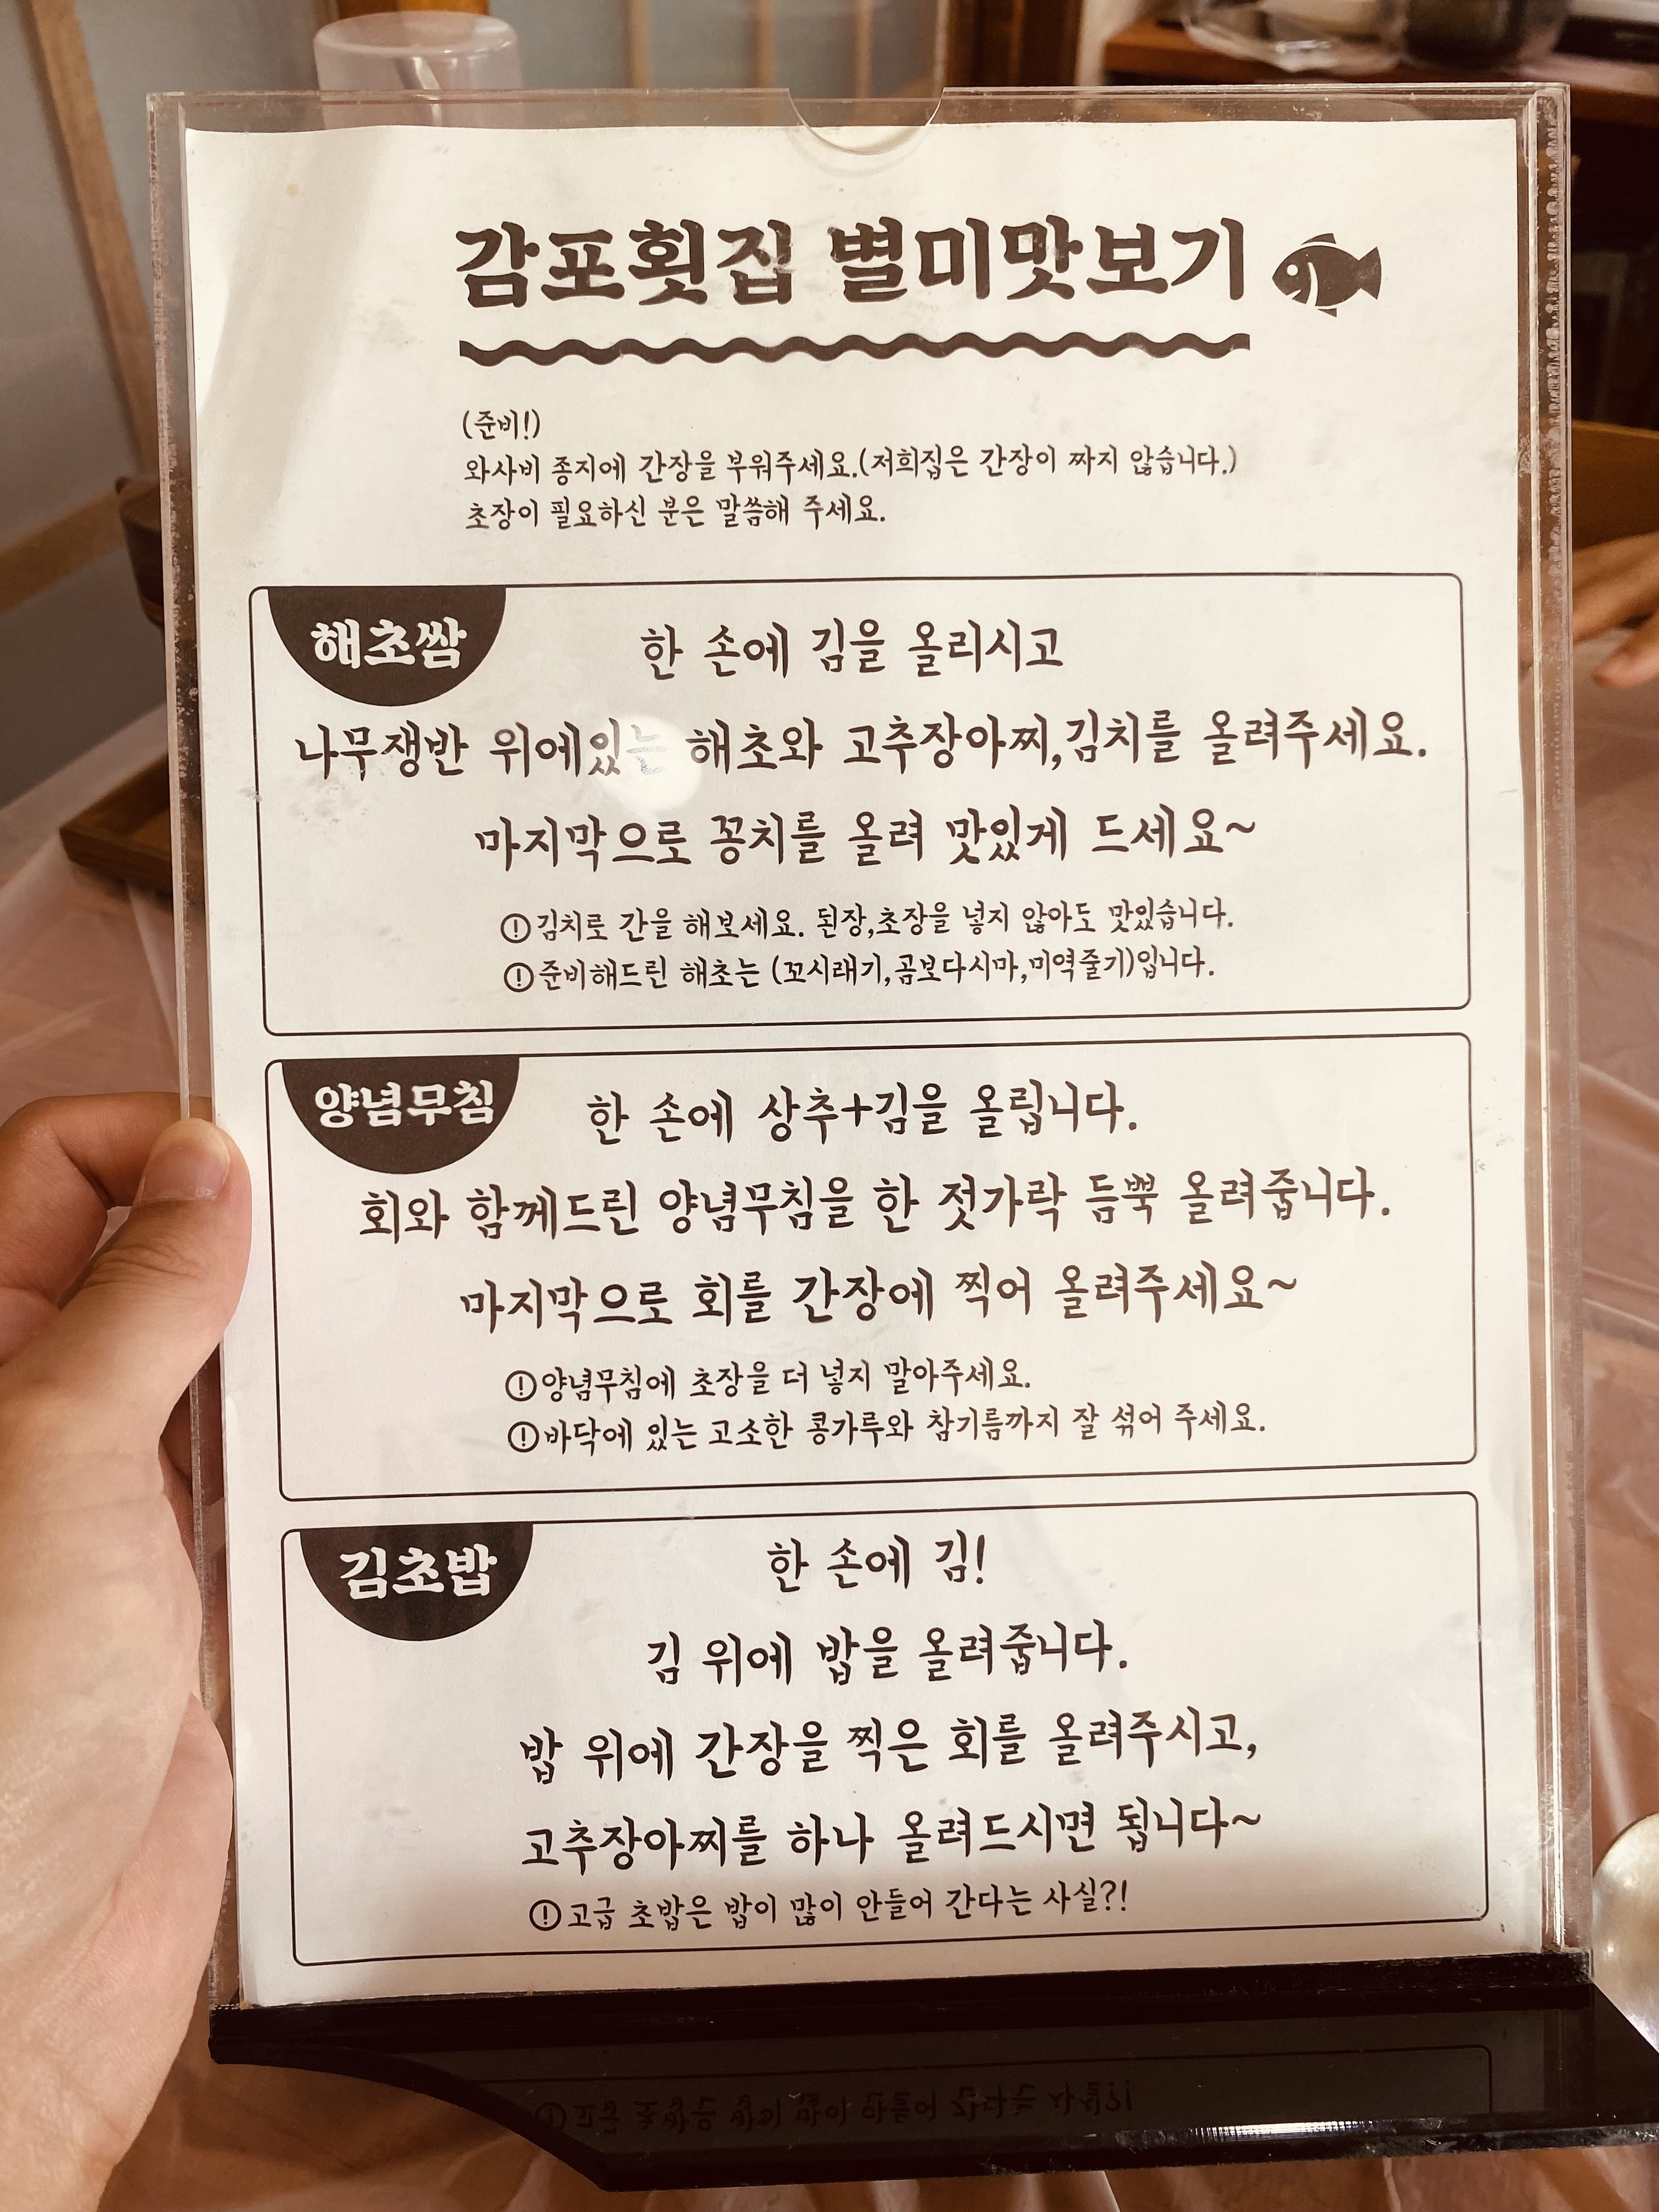 감포횟집 별미맛보기
(준비!)
와사비 종지에 간장을 부워주세요.(저희집은 간장이 짜지 않습니다.)
초장이 필요하신 분은 말씀해 주세요.
해초쌈
한 손에 김을 올리시고
나무쟁반 위에있는 해초와 고추장아찌,김치를 올려주세요.
마지막으로 꽁치를 올려 맛있게 드세요~
! 김치로 간을 해보세요. 된장,초장을 넣지 않아도 맛있습니다.
! 준비해드린 해초는 (꼬시래기,곰보다시마,미역줄기)입니다.
양념무침
한 손에 상추+김을 올립니다.
회와 함께드린 양념무침을 한 젓가락 듬뿍 올려줍니다.
마지막으로 회를 간장에 찍어 올려주세요~
! 양념무침에 초장을 더 넣지 말아주세요.
! 바닥에 있는 고소한 콩가루와 참기름까지 잘 섞어 주세요.
김초밥
한 손에 김!
김 위에 밥을 올려줍니다.
밥 위에 간장을 찍은 회를 올려주시고,
고추장아찌를 하나 올려드시면 됩니다~
! 고급 초밥은 밥이 많이 안들어 간다는 사실?!